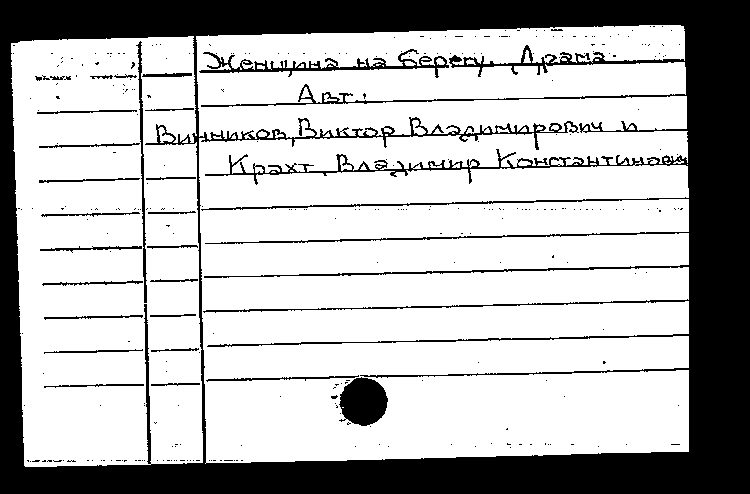 Женщина на берегу. Драма.
Авт.:
Винников, Виктор Владимирович и
Крахт, Владимир Константинович